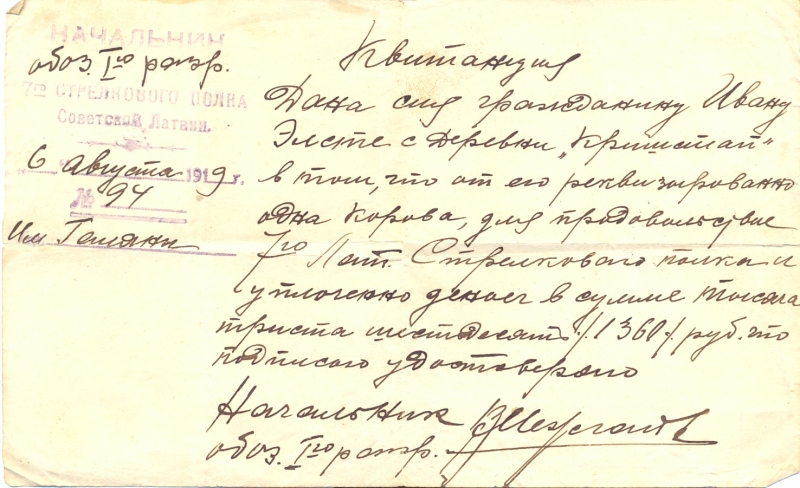 НАЧАЛЬНИК
обоз. Iго разр.
7го СТРЕЛКОВОГО ПОЛКА
Советской Латвии.
„6" Августа 1919 г.
№ 94
Им Галяны
Квитанция
Дана сия гражданину Ивану
Элсте с деревни „Кришстап"
в том, что от его реквизированно
одна корова, для продовольствие
7го Лат. Стрелкового полка и
уплоченно денег в сумме тысяча
триста шестдесять /1360/ руб. что
подписою удостоверяю
Начальник
обоз. Iго разр.